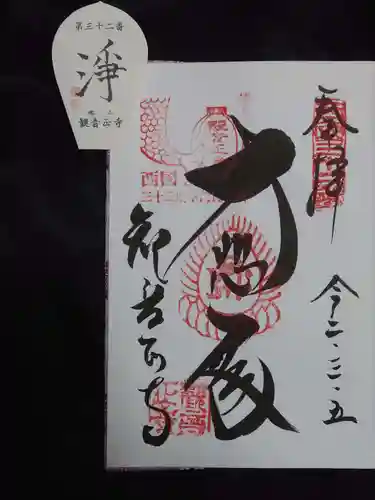 第三十二番
淨
観音正寺
奉拝
令二・三・五
大悲殿
観音正寺
西国
三十三